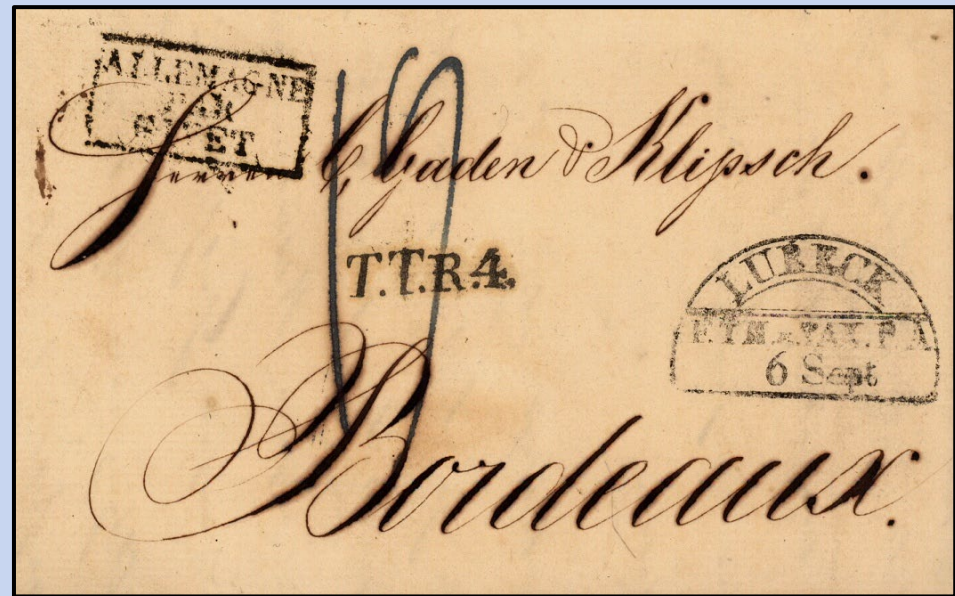 ALLEMAGNE
PAR
GIVET
Herren C. Gaden & Klipsch.
19
T.T.R.4.
LUBECK
F. TH. u. TAX. P. A
6 Sept
Bordeaux.